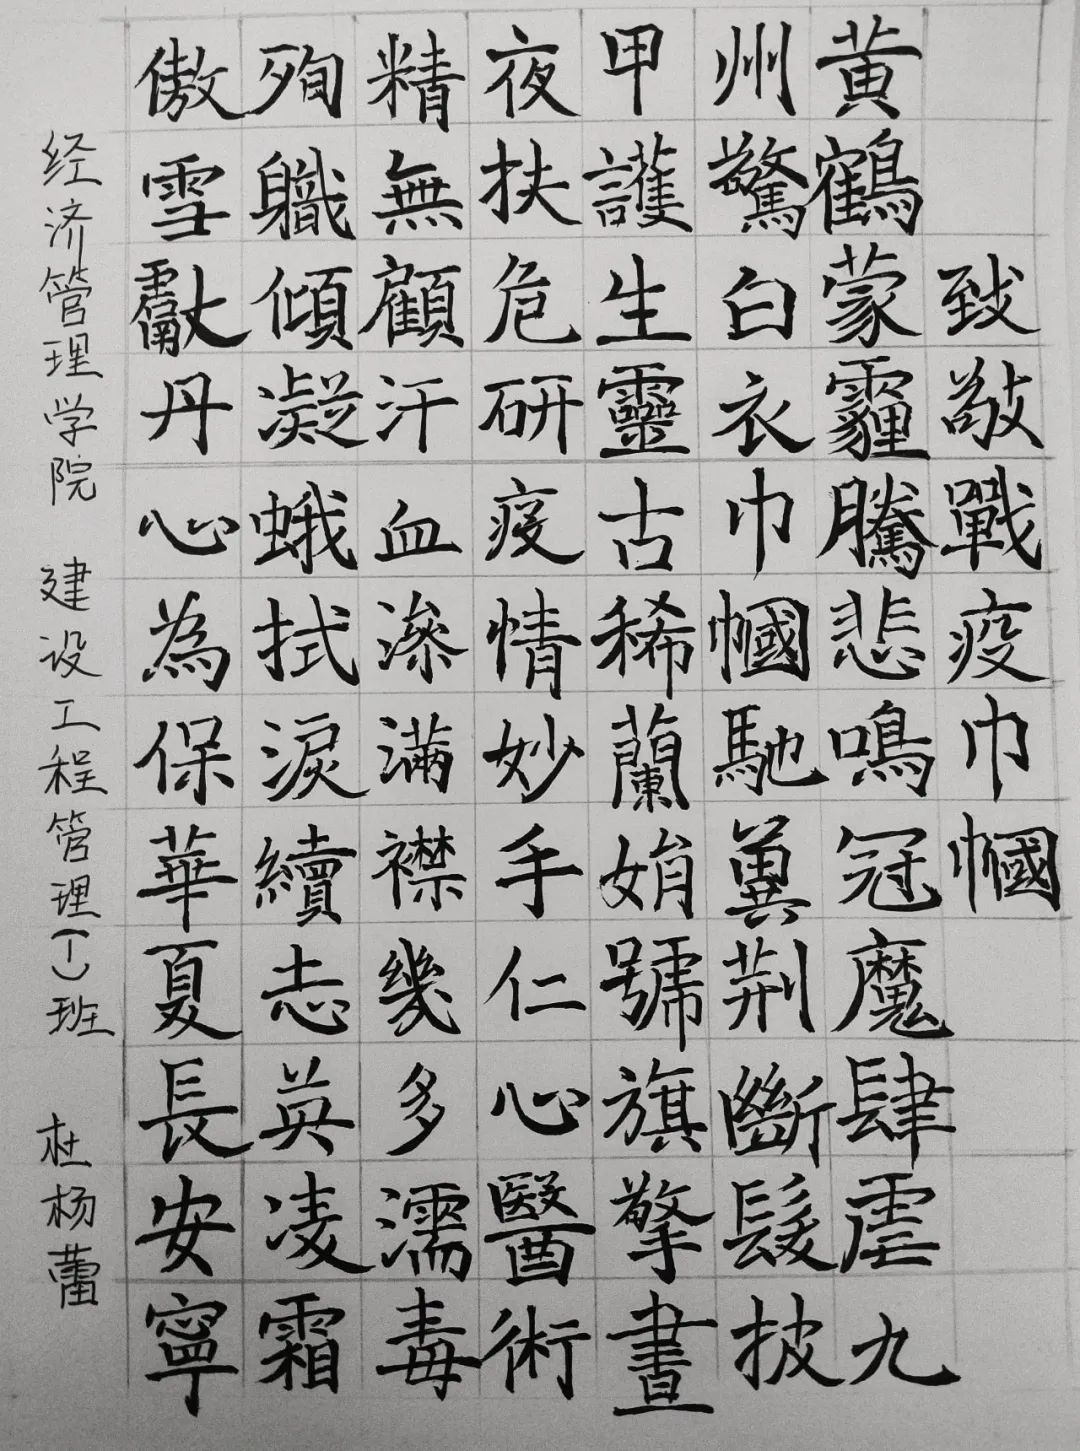 致敬戰疫巾幗
黄鶴蒙霾騰悲鳴冠魔肆虐九
州驚白衣巾幗馳冀荆斷髮披
甲護生靈古稀蘭娟號旗擎晝
夜扶危研疫情妙手仁心醫術
精無顧汗血滲滿襟幾多濡毒
殉職傾凝蛾拭淚續志英凌霜
傲雪獻丹心為保華夏長安寧
经济管理学院 建设工程管理(1)班 杜杨蕾